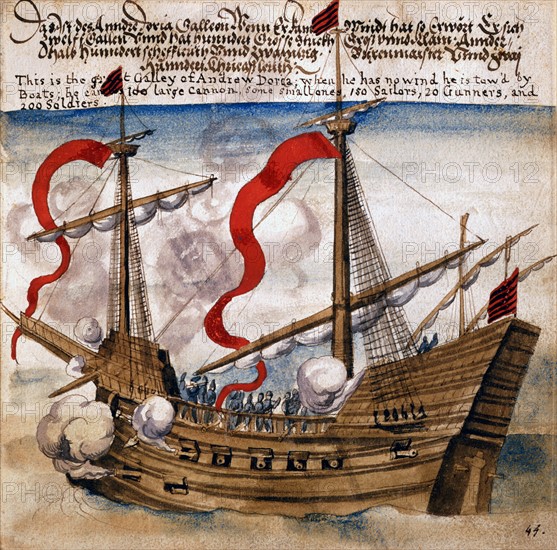 Das ist des Anndre Doria Galleon Wenn Er kain Windt hat so Erwört Er sich
Zwelff Gallen Vnnd hat hundert Grosse Stuckh Gros vnnd Klain Annder-
thalb Hundert scheffleuth Vnnd Zwainzig Bixenmaister Vnnd Zwaj
Hundert
This is the great Galley of Andrew Dorea; when he has no wind he is tow'd by
Boats; he 100 large Cannon, some small ones, 150 Sailors, 20 Gunners, and
200 Soldiers.
PHOTO12